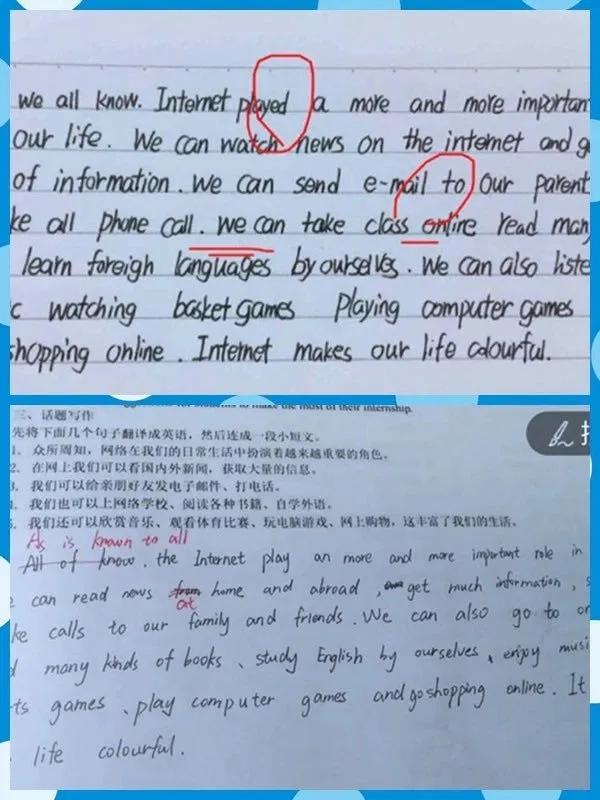 we all know. Internet played a more and more importan
our life. We can watch news on the internet and g
of information. We can send e-mail to our parent
ke all phone call. we can take class online read man
learn foreigh languages by ourselves. We can also liste
c watching basket games Playing computer games
shopping online. Internet makes our life colourful.
to make the most of their internship.
三、话题写作
先将下面几个句子翻译成英语，然后连成一段小短文。
1. 众所周知，网络在我们的日常生活中扮演着越来越重要的角色。
2. 在网上我们可以看国内外新闻，获取大量的信息。
3. 我们可以给亲朋好友发电子邮件、打电话。
我们也可以上网络学校、阅读各种书籍、自学外语。
我们还可以欣赏音乐、观看体育比赛、玩电脑游戏、网上购物，这丰富了我们的生活。
As is known to all
All of know. the Internet play an more and more important role in
can read news from home and abroad, get much information, s
at
ke calls to our family and friends. We can also go to on
d many kinds of books、study English by ourselves、enjoy musi
ts games、play computer games and go shopping online. It
life colourful.